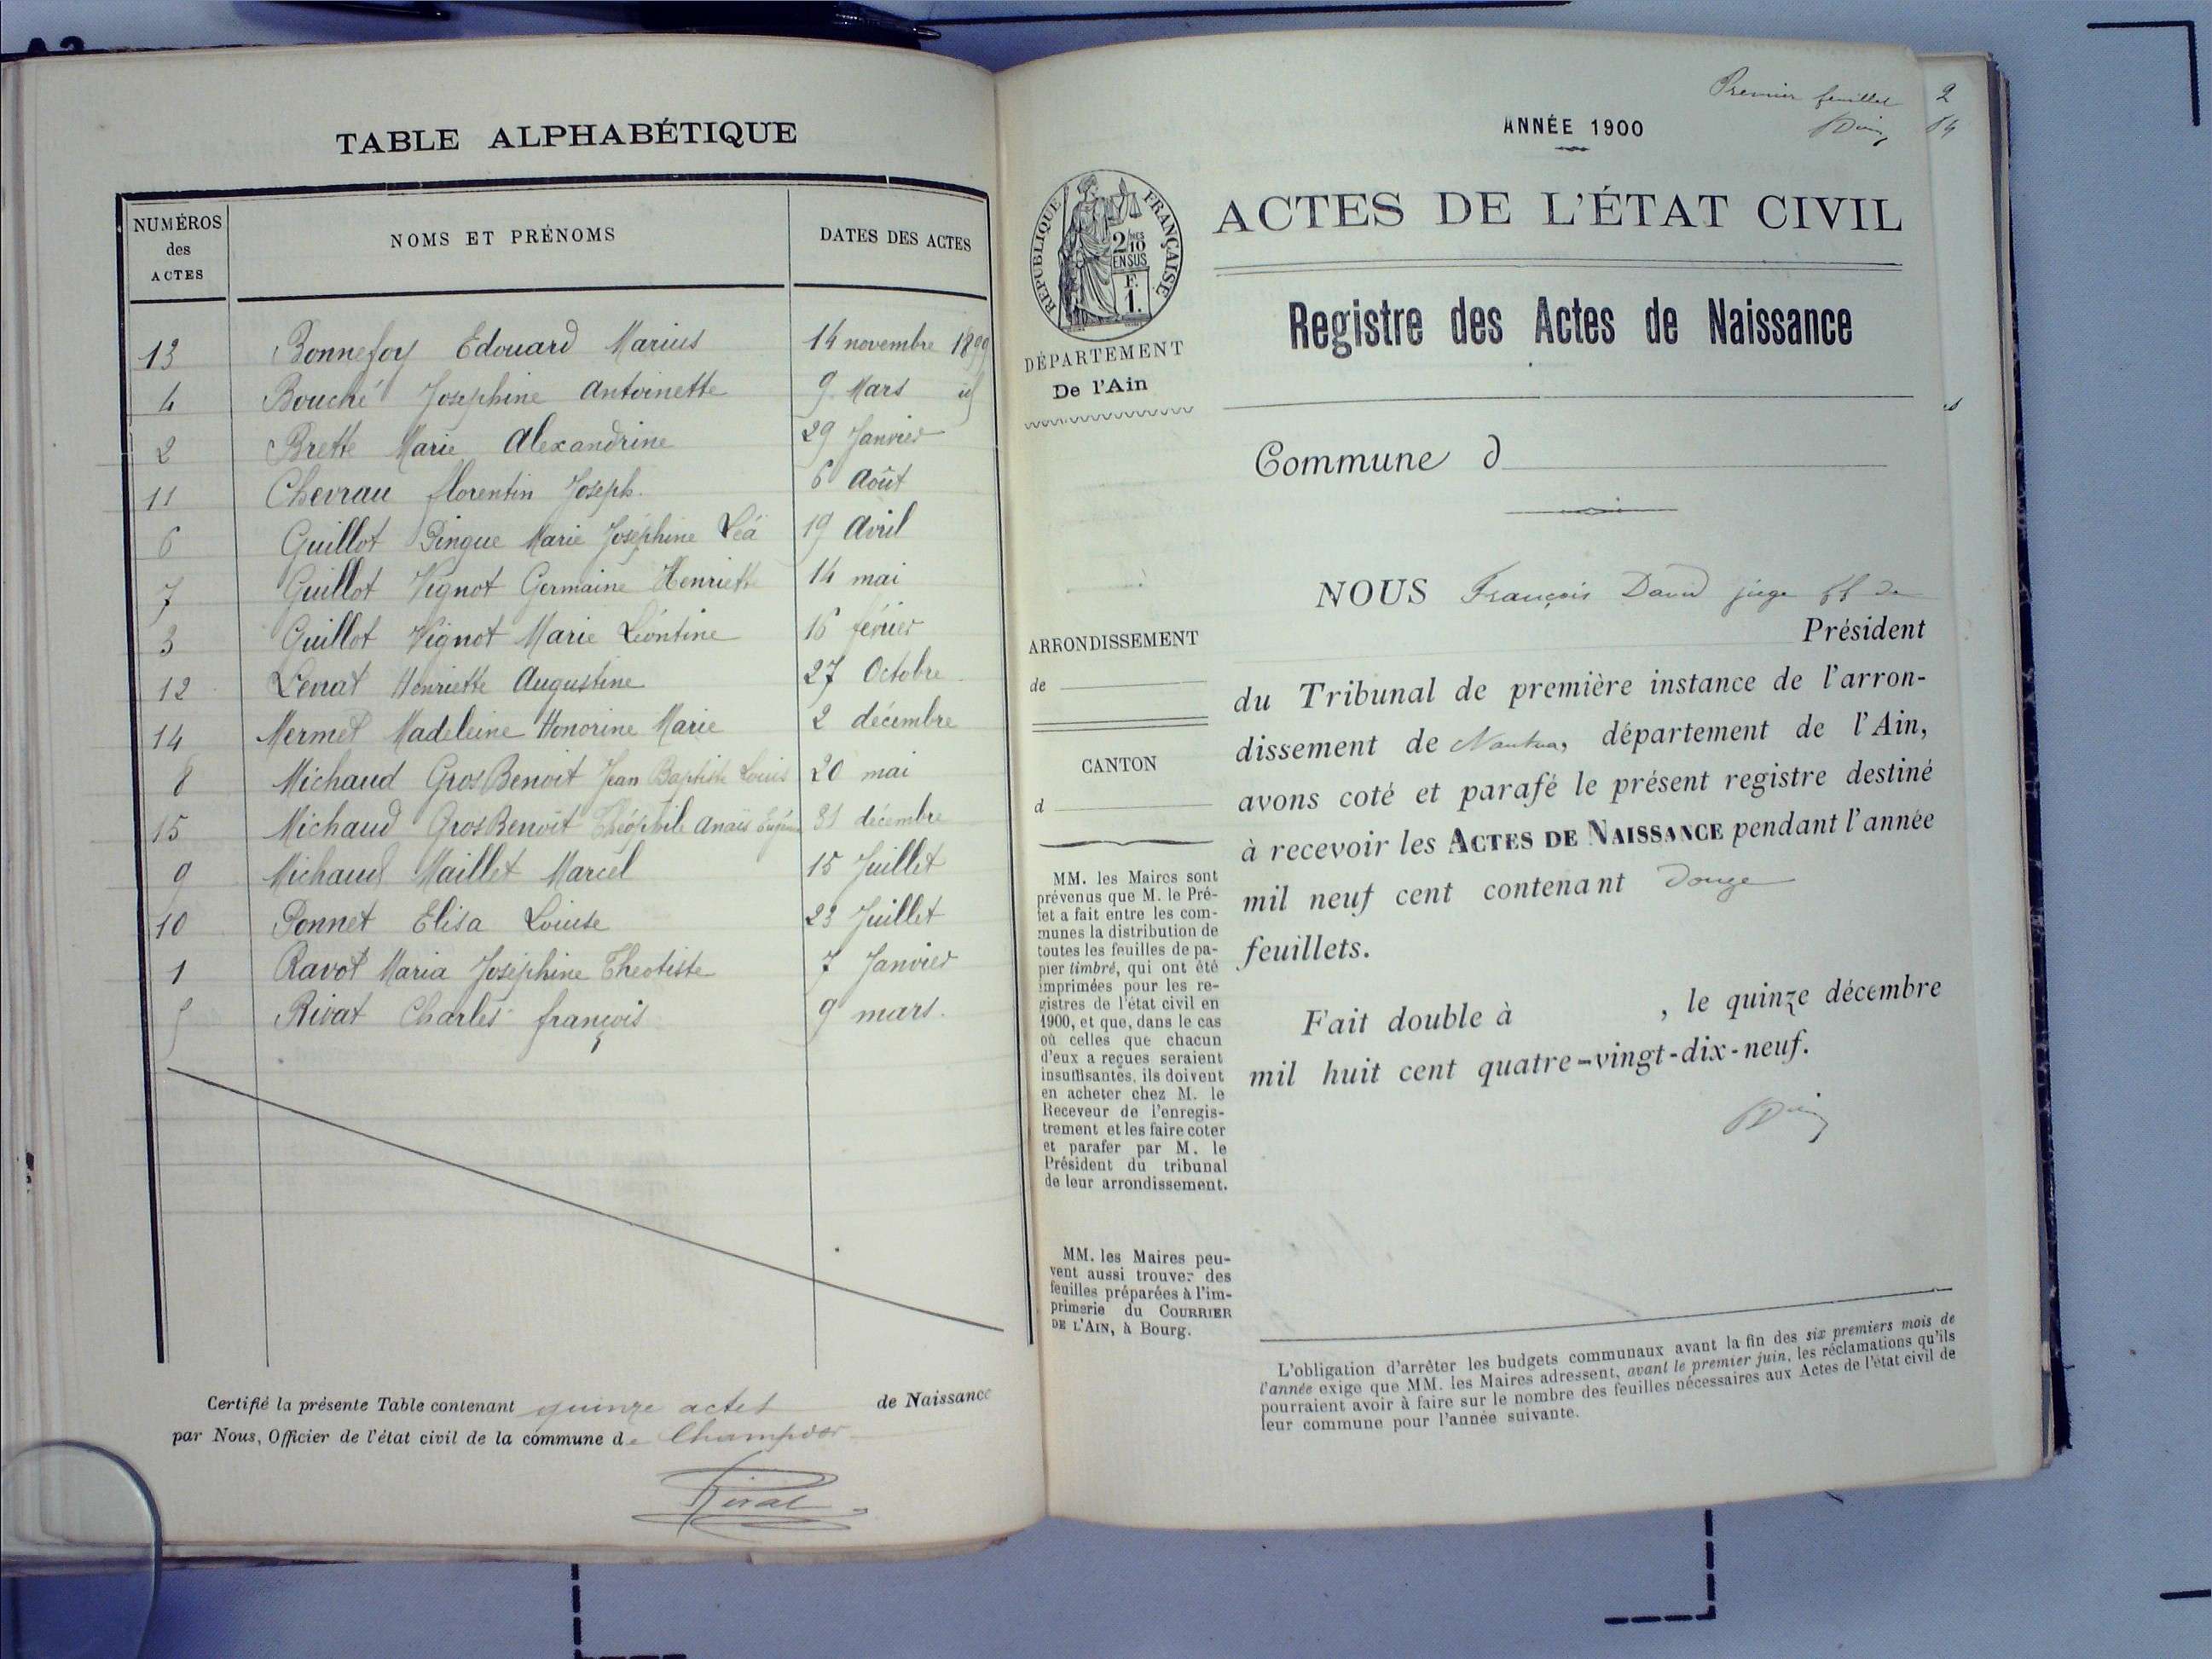 TABLE ALPHABÉTIQUE
NUMÉROS des ACTES NOMS ET PRÉNOMS DATES DES ACTES
13 Bonnefoy Edouard Marius 14 novembre 1899
4 Bouché Josephine Antoinette 9 Mars id
2 Brette Marie Alexandrine 29 Janvier
11 Chevrau florentin Joseph. 6 Août
6 Guillot Pingue Marie Joséphine Léa 19 Avril
7 Guillot Vignot Germaine Henriette 14 mai
3 Guillot Vignot Marie Léontine 16 février
12 Levrat Henriette Augustine 27 Octobre
14 Mermet Madeleine Honorine Marie 2 décembre
8 Michaud Gros Benoit Jean Baptiste Louis 20 mai
15 Michaud Gros Benoit Théophile Anaïs 31 décembre
9 Michaud Maillet Marcel 15 Juillet
10 Ponnet Elisa Louise 23 Juillet
1 Ravot Maria Joséphine Theotiste 7 Janvier
5 Rivat Charles françois 9 mars.
Certifié la présente Table contenant quinze actes de Naissance
par Nous, Officier de l'état civil de la commune de Champdor
Rivat
Premier feuillet 2
14
ANNÉE 1900
ACTES DE L'ÉTAT CIVIL
RÉPUBLIQUE FRANÇAISE
2/10 EN SUS
F. 1.
DÉPARTEMENT
De l'Ain
Registre des Actes de Naissance
Commune d
ARRONDISSEMENT
de
CANTON
d
MM. les Maires sont
prévenus que M. le Pré-
fet a fait entre les com-
munes la distribution de
toutes les feuilles de pa-
pier timbré, qui ont été
imprimées pour les re-
gistres de l'état civil en
1900, et que, dans le cas
où celles que chacun
d'eux a reçues seraient
insuffisantes, ils doivent
en acheter chez M. le
Receveur de l'enregis-
trement et les faire coter
et parafer par M. le
Président du tribunal
de leur arrondissement.
MM. les Maires peu-
vent aussi trouver des
feuilles préparées à l'im-
primerie du COURRIER
DE L'AIN, à Bourg.
NOUS François David juge ff de
Président
du Tribunal de première instance de l'arron-
dissement de Nantua, département de l'Ain,
avons coté et parafé le présent registre destiné
à recevoir les ACTES DE NAISSANCE pendant l'année
mil neuf cent contenant Douze
feuillets.
Fait double à , le quinze décembre
mil huit cent quatre-vingt-dix-neuf.
L'obligation d'arrêter les budgets communaux avant la fin des six premiers mois de
l'année exige que MM. les Maires adressent, avant le premier juin, les réclamations qu'ils
pourraient avoir à faire sur le nombre des feuilles nécessaires aux Actes de l'état civil de
leur commune pour l'année suivante.